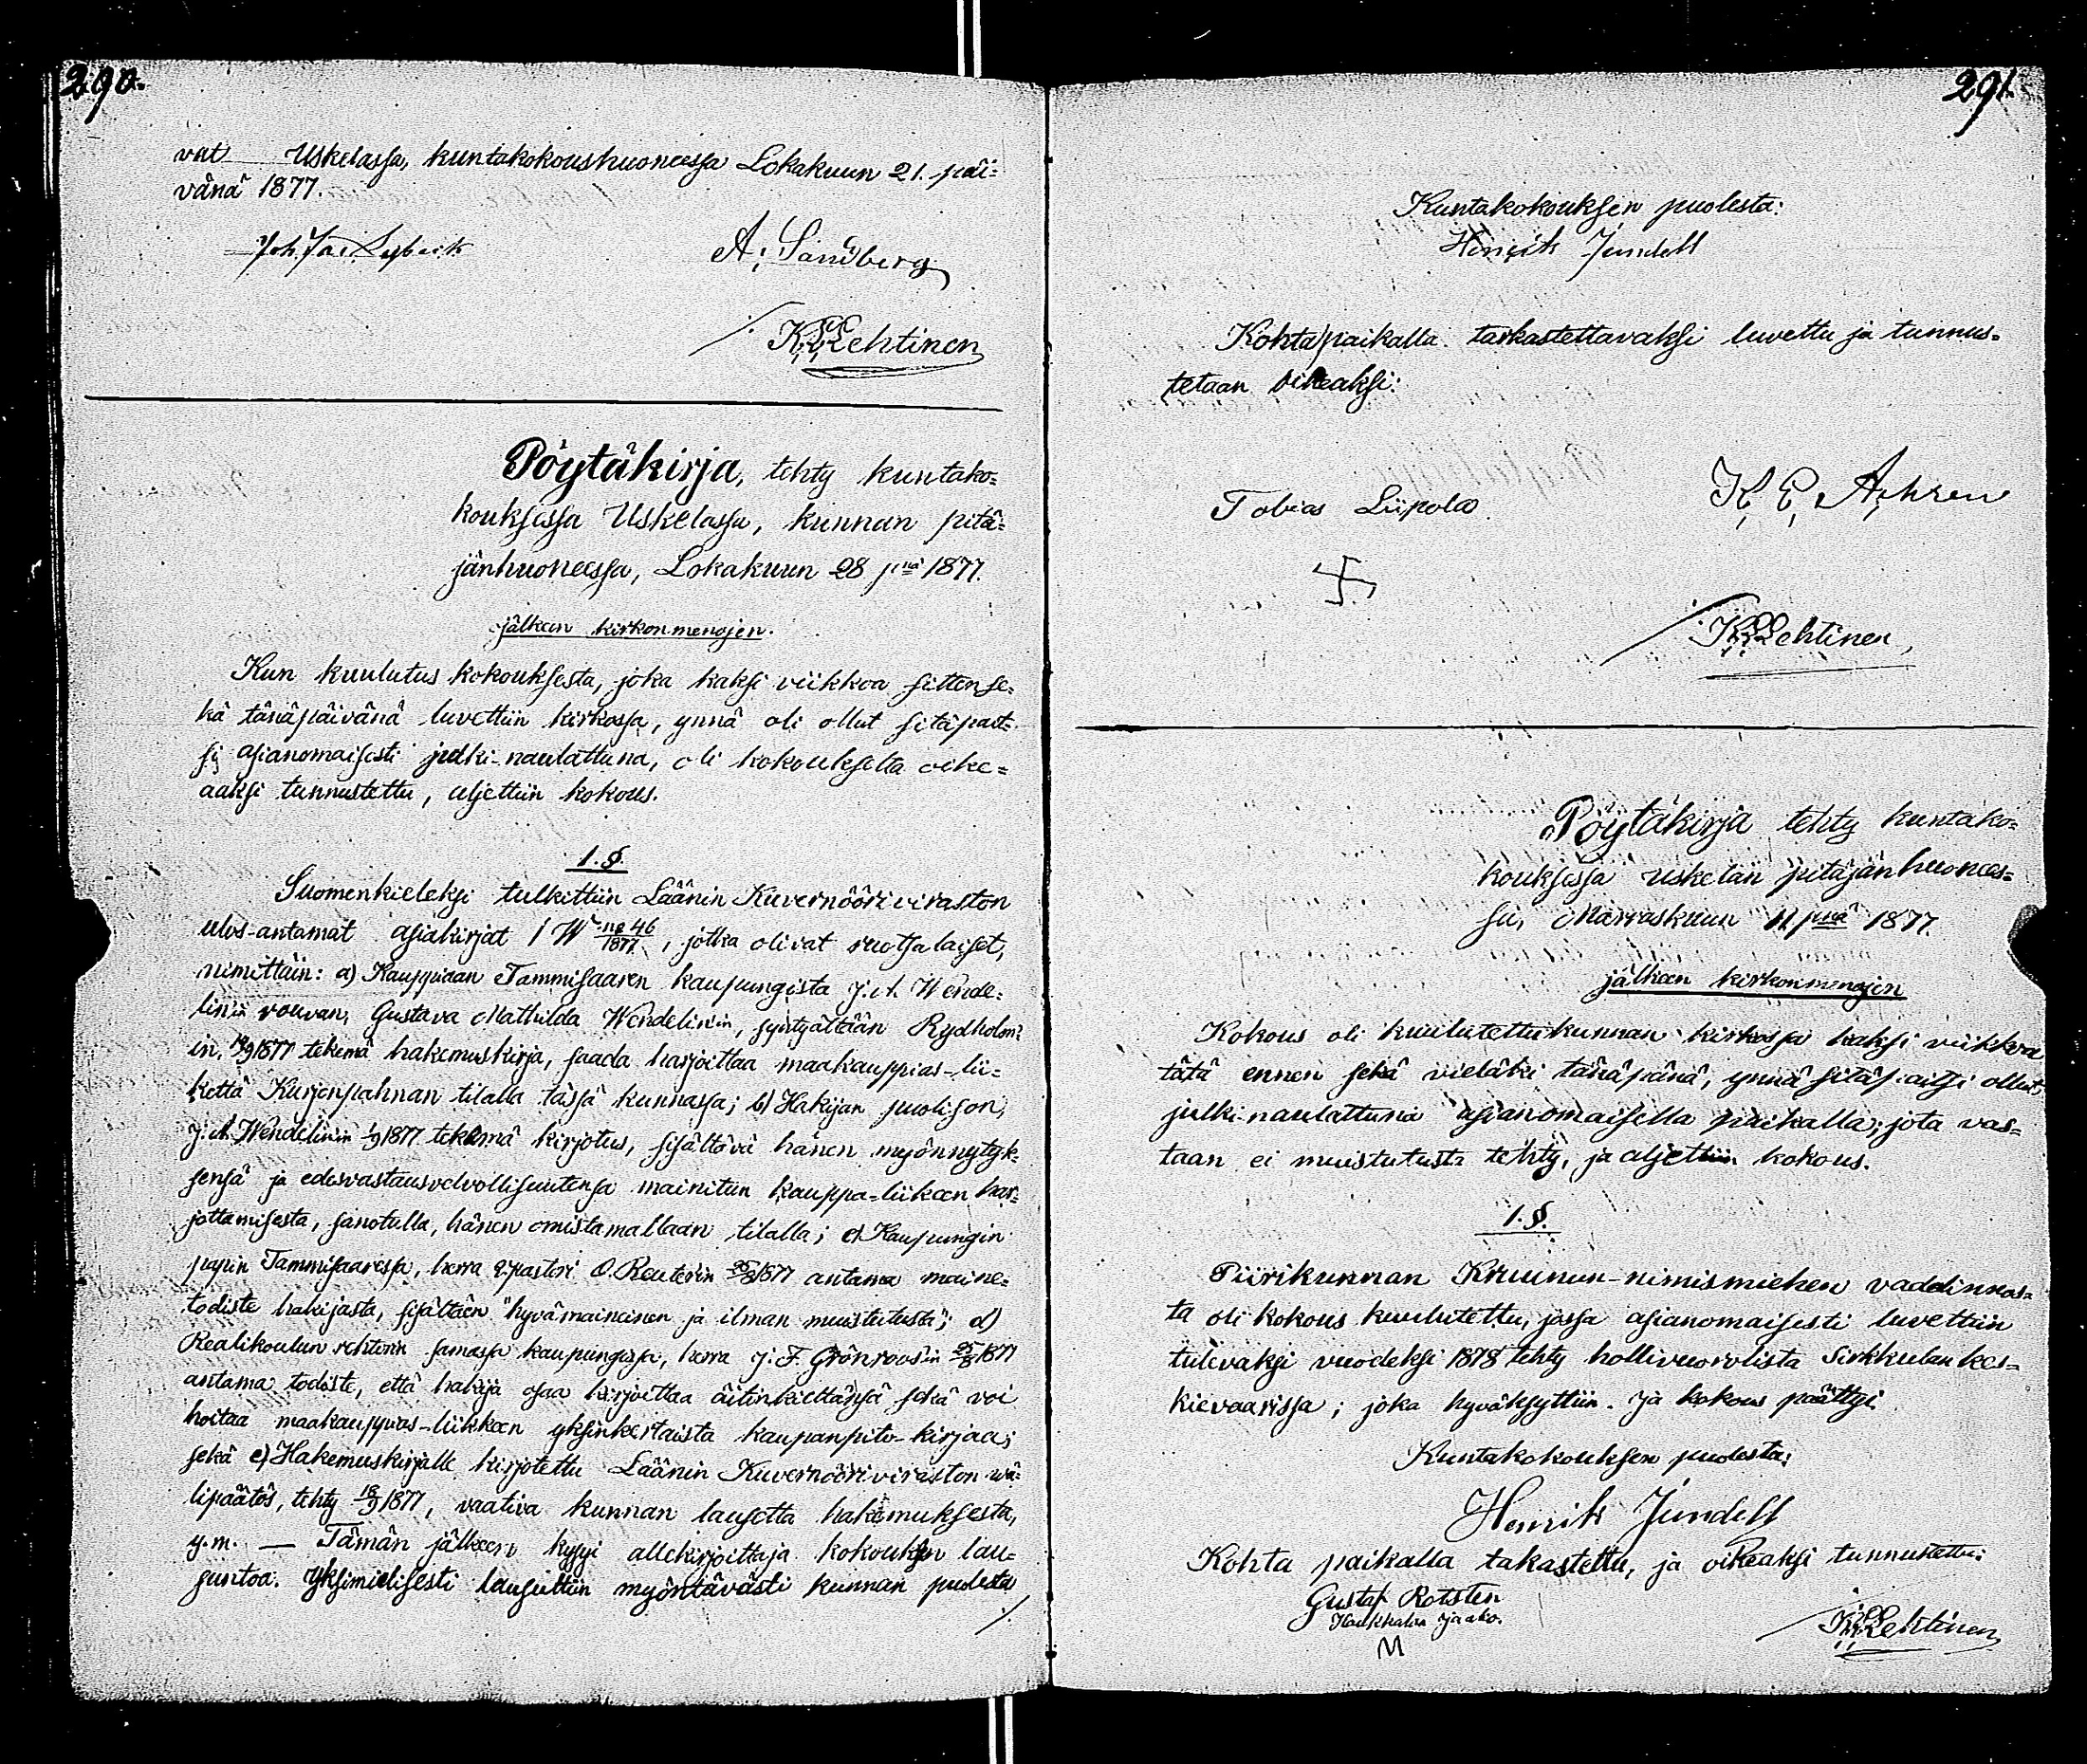 290.
vat Uskelassa, kuntakokoushuoneessa Lokakuun 21. päi=
vänä 1877.
Joh. Jac. Lybeck
A. Sandberg
K. E. Lehtinen
Pöytäkirja, tehty kuntako=
kouksessa Uskelassa, kunnan pitä=
jänhuoneessa, Lokakuun 28 pnä 1877.
jälkeen kirkonmenojen.
Kun kuulutus kokouksesta, joka kaksi viikkoa sitten se=
kä tänäpäivänä luvettiin kirkossa, ynnä oli ollut sitäpait=
si asianomaisesti julki-naulattuna, oli kokoukselta oike=
aaksi tunnustettu, aljettiin kokous.
1. §.
Suomenkieleksi tulkittiin Läänin Kuvernööriviraston
ulos-antamat asiakirjat no 46/1877, jotka olivat ruotsalaiset,
nimittäin: a) Kauppiaan Tammisaaren kaupungista J. A. Wende=
lin'in rouvan, Gustava Mathilda Wendelin'in, syntyältään Rydholm'
in, 1877 tekemä hakemuskirja, saada harjoittaa maakauppias-lii=
kettä Kurjenpahnan tilalla tässä kunnassa; b) Hakijan puolison,
J. A. Wendelin'in 1/9 1877 tekemä kirjotus, sisältävä hänen myönnytyk=
sensä ja edesvastausvelvollisuutensa mainitun kauppa-liikeen har=
jottamisesta, sanotulla, hänen omistamallaan tilalla; c) Kaupungin
papin Tammisaaressa, herra v. pastori O. Reuter'in 1877 antama maine=
todiste hakijasta, sisältäen "hyvämaineinen ja ilman muistutusta"; d)
Realikoulun rehtorin samassa kaupungissa, herra J. F. Grönroos'in 1877
antama todiste, että hakija osaa kirjoittaa äitinkieltänsä sekä voi
hoitaa maakauppias-liikkeen yksinkertaista kaupanpito-kirjaa;
sekä e) Hakemuskirjalle kirjotettu Läänin Kuvernööriviraston vä=
lipäätös, tehty 18/9 1877, vaativa kunnan lausetta hakemuksesta,
y.m. — Tämän jälkeen kysyi allekirjoittaja kokouksen lau=
suntoa. Yksimielisesti lausuttiin myöntävästi kunnan puolesta
291.
Kuntakokouksen puolesta:
Henrik Jundell
Kohta paikalla tarkastettavaksi luvettu ja tunnus=
tetaan oikeaksi:
Tobias Liipola
K. E. Ahren
K. E. Lehtinen
Pöytäkirja tehty kuntako=
kouksessa Uskelan pitäjänhuonees=
sa, Marraskuun 11 pnä 1877.
jälkeen kirkonmenojen
Kokous oli kuulutettu kunnan kirkossa kaksi viikkoa
tätä ennen sekä vieläki tänäpänä, ynnä sitäpaitsi ollut
julki-naulattuna asianomaisella paikalla; jota vas=
taan ei muistutusta tehty, ja aljettiin kokous.
1. §.
Piirikunnan Kruunun-nimismiehen vaadinnas=
ta oli kokous kuulutettu, jossa asianomaisesti luvettiin
tulevaksi vuodeksi 1878 tehty hollivuorolista Sirkkulan kes=
kievaarissa; joka hyväksyttiin. Ja kokous päättyi
Kuntakokouksen puolesta:
Henrik Jundell
Kohta paikalla takastettu, ja oikeaksi tunnustettu:
Gustaf Rotsten
Haukkalan Jaako.
M
K. E. Lehtinen